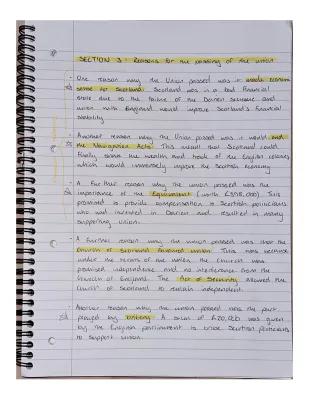 SECTION 3 - Reasons for the passing of the union
- One reason why the Union passed was it made economic
sense for Scotland. Scotland was in a bad financial
state due to the failure of the Darien scheme and
union with England would improve Scotland's financial
stability
- Another reason why the Union passed was it would end
the Navigation Acts. This meant that Scotland could
finally share the wealth and trade of the English colonies
which would immensely improve the Scottish economy
- A further reason why the union passed was the
importance of the Equivalent (worth £398,000). This
promised to provide compensation to Scottish politicians
who had invested in Darien and resulted in many
supporting union.
- A further reason why the union passed was that the
Church of Scotland favoured union. This was because
under the terms of the union, the Church was
promised independence and no interference from the
of England. The Act of Security allowed the
Church of Scotland to remain independent.
- Another reason why the union passed was the part
played by bribery. A sum of £20,000 was given
by the English parliament to bribe Scottish politicians
to support union.